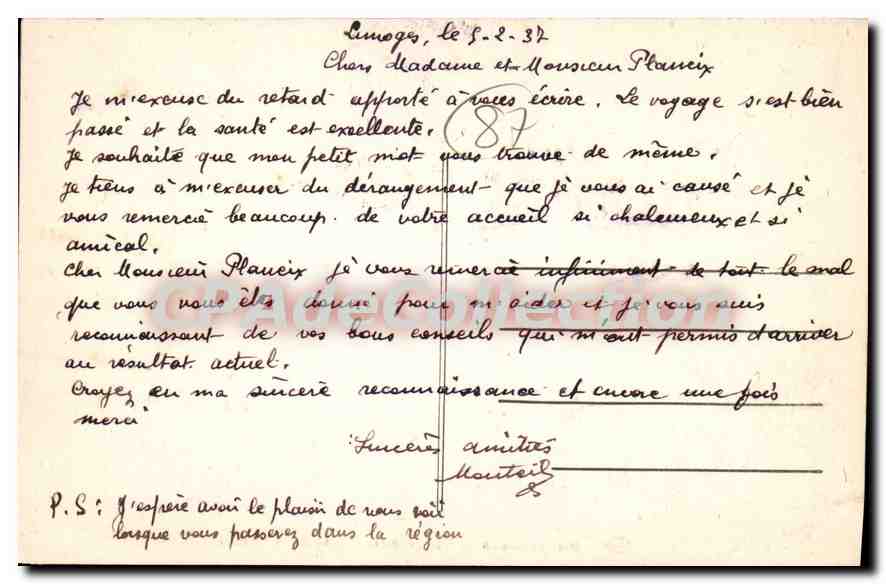 Limoges, le 5-2-37
Chers Madame et Monsieur Planeix
Je m'excuse du retard apporté à vous écrire. Le voyage s'est bien
passé et la santé est excellente.
87
Je souhaite que mon petit mot vous trouve de même.
Je tiens à m'excuser du dérangement que je vous ai causé et je
vous remercie beaucoup de votre accueil si chaleureux et si
amical.
Cher Monsieur Planeix je vous remercie infiniment de tout le mal
que vous vous êtes donné pour m'aider et je vous suis
reconnaissant de vos bons conseils qui m'ont permis d'arriver
au résultat actuel.
Croyez en ma sincère reconnaissance et encore une fois
merci
Sincères amitiés
Monteil
P.S: J'espère avoir le plaisir de vous voir
lorsque vous passerez dans la région
CPAdeCollection